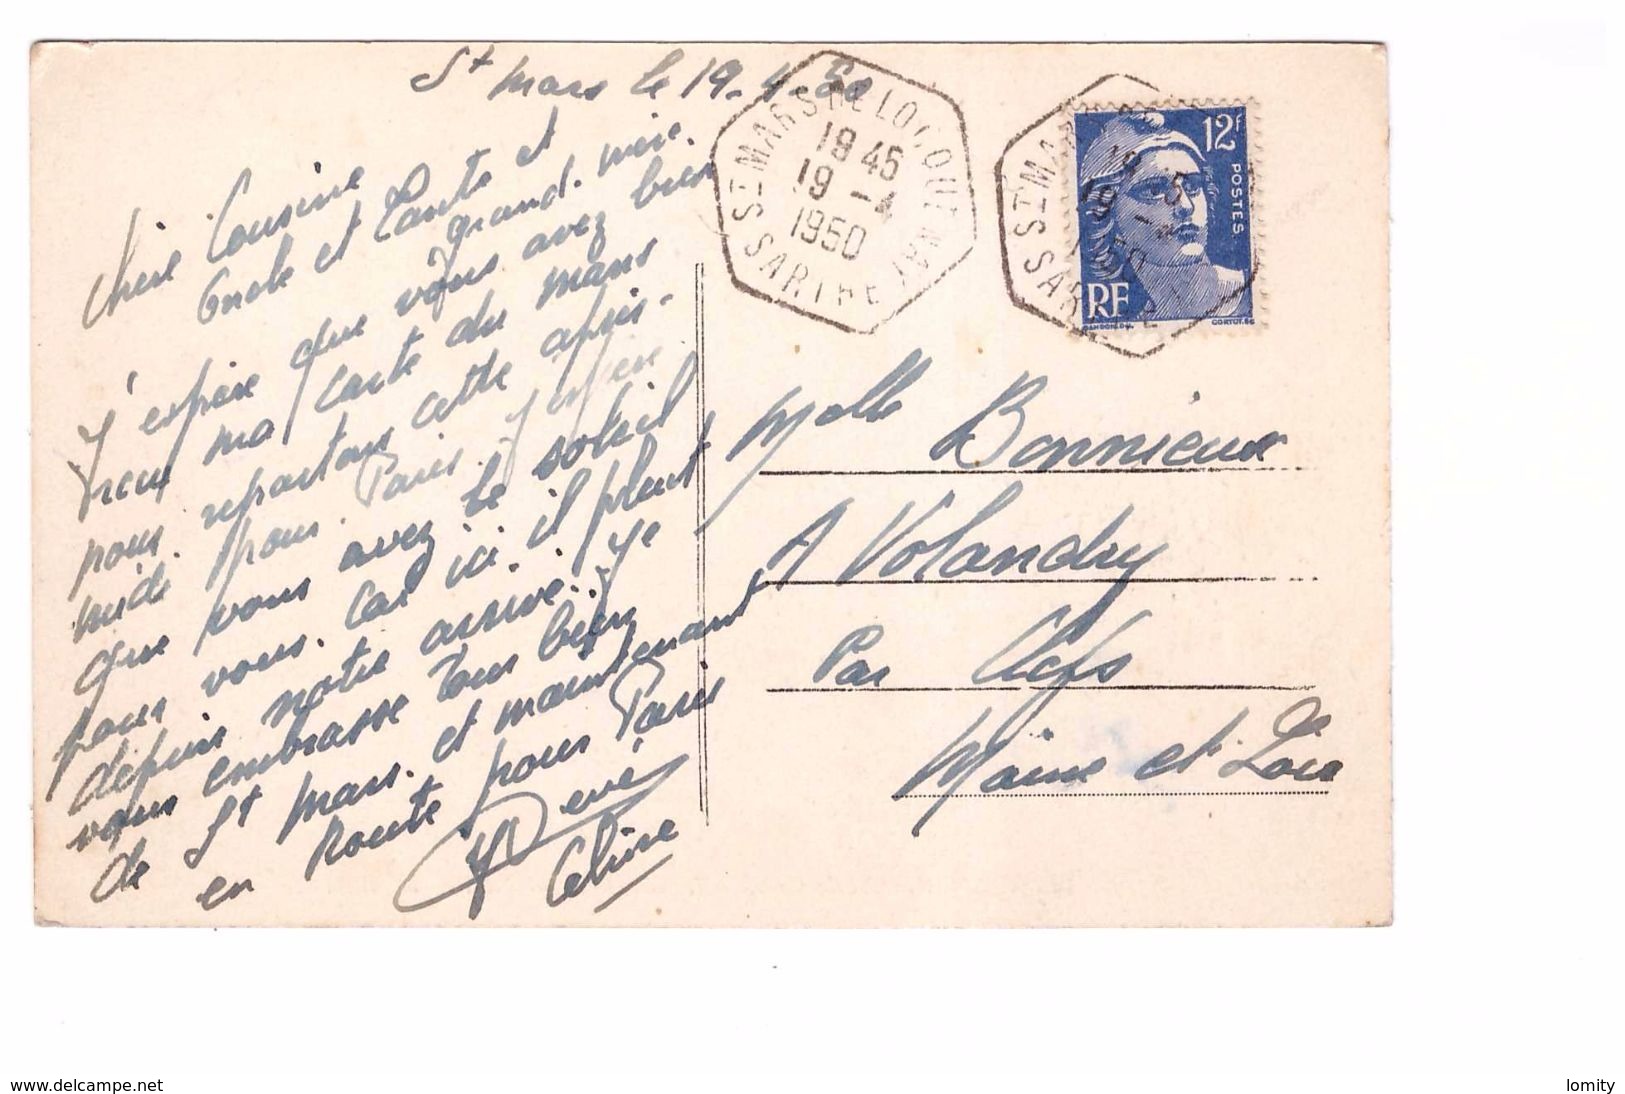 St Mars le 19-4-50
Chère Cousine
Oncle et Tante et
grand-mère.
J'espère que vous avez bien
reçu ma carte du Mans
nous repartons cette après-
midi pour Paris. J'espère
que vous avez le soleil
pour vous. Car ici il pleut
depuis notre arrivé. Je
vous embrasse tous bien
de St Mars. et maintenant
en Route pour Paris
René
Céline
Melle Bonnieux
A Volandry
Par Clefs
Maine et Loire
ST MARS DE LOCQUENAY
18 45
19 - 4
1950
SARTHE
12F
POSTES.
RF
GANDON.DEL.
CORTOT.SC
ST MAR
18 5
19 -
1950
SAR E
www.delcampe.net
lomity